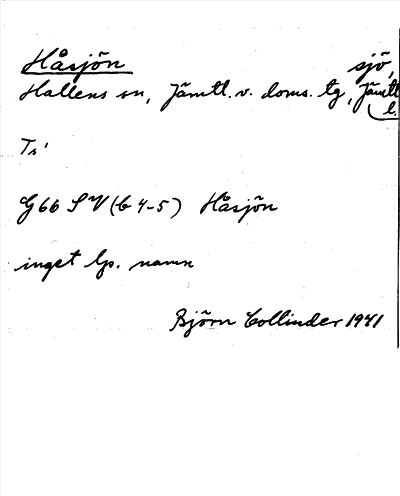 Håsjön sjö,
Hallens sn, Jämtl. v. doms. tg, Jämtl.
l.
Tr.
G66 SV (b 4-5) Håsjön
inget lp. namn
Björn Collinder 1941